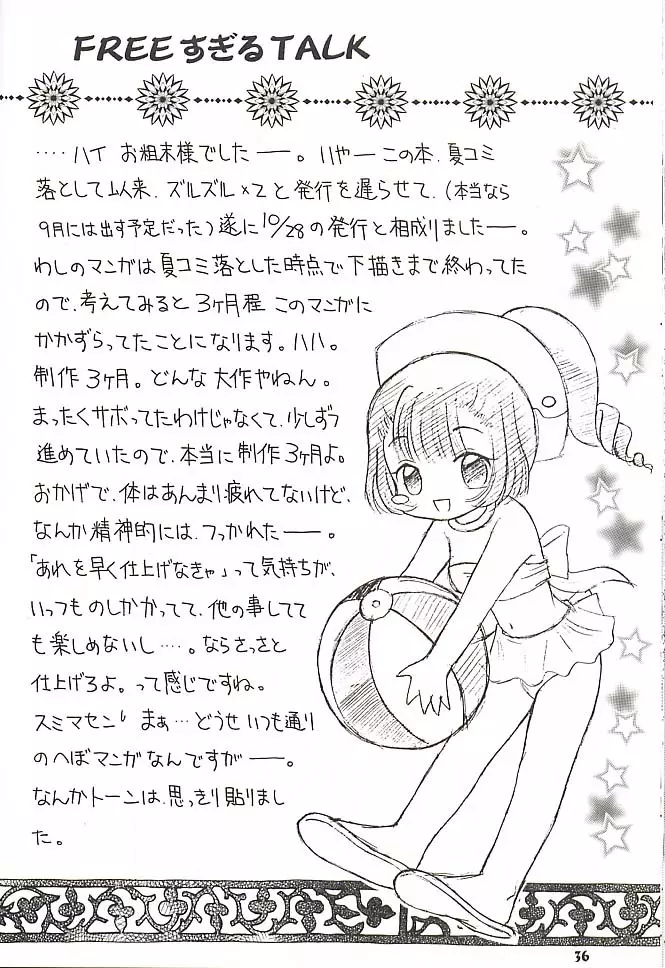 FREEすぎるTALK
‥‥ハイ お粗末様でしたーー。いやーこの本、夏コミ
落として以来、ズルズル×2と発行を遅らせて、(本当なら
9月には出す予定だった)遂に10/28の発行と相成りましたーー。
わしのマンガは夏コミ落とした時点で下描きまで終わってた
ので、考えてみると3ヶ月程このマンガに
かかずらってたことになります。ハハ。
制作3ヶ月。どんな大作やねん。
まったくサボってたわけじゃなくて、少しずつ
進めていたので、本当に制作3ヶ月よ。
おかげで、体はあんまり疲れてないけど、
なんか精神的には、つっかれたーー。
「あれを早く仕上げなきゃ」って気持ちが、
いっつものしかかってて、他の事してて
も楽しめないし‥‥。ならさっさと
仕上げろよ。って感じですね。
スミマセン まぁ…どうせいつも通り
のへぼマンガなんですがーー。
なんかトーンは、思っきり貼りまし
た。
36